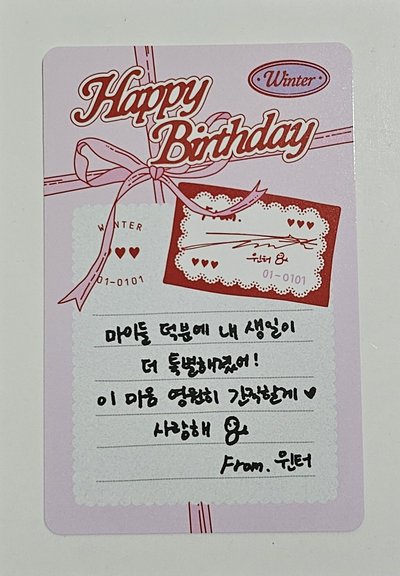 Happy
Birthday
Winter
WINTER
01-0101
From.
윈터
01-0101
마이들 덕분에 내 생일이
더 특별해졌어!
이 마음 영원히 간직할게 ♥
사랑해
From. 윈터